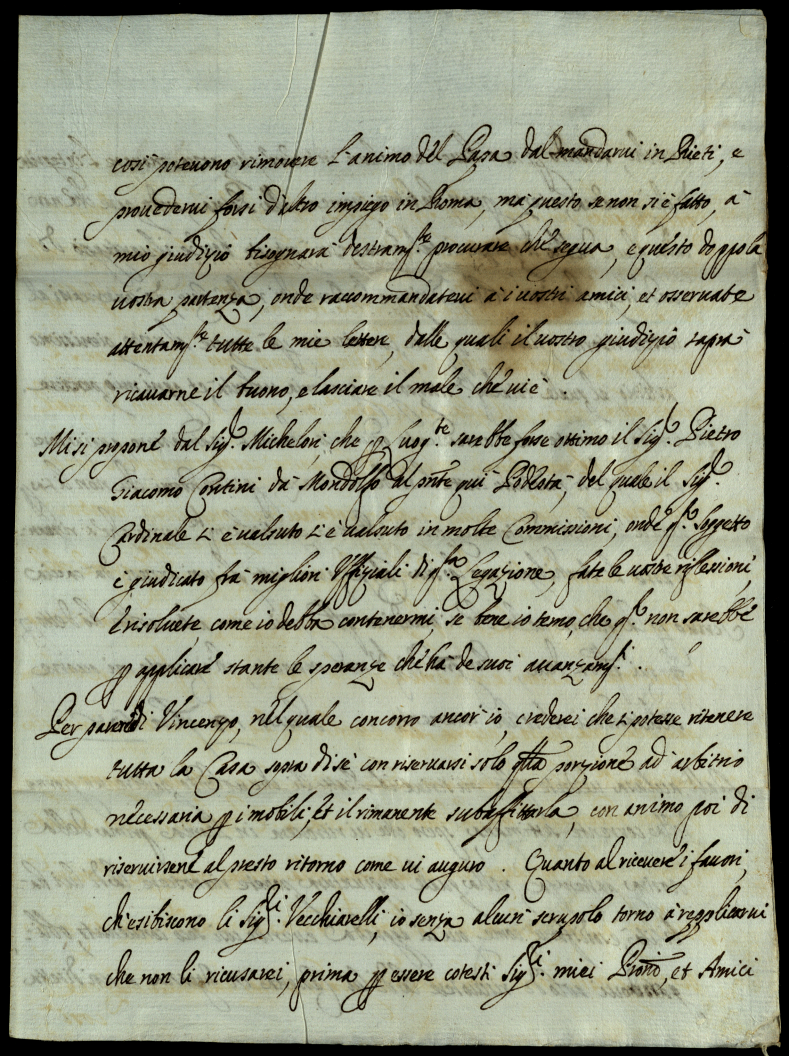 così potevono rimovere l'animo del Papa dal mandarvi in Rieti, e
provedervi forsi d'altro impiego in Roma, mà questo se non si è fatto, à
mio giudizio bisognarà destram.te procurare che segua, e questo doppo la
vostra partenza, onde raccommandatevi à i vostri amici, et osservate
attentam.te tutte le mie lettere, dalle quali il vostro giudizio saprà
ricavarne il buono, e lasciare il male che vi è.
Mi si propone dal Sig.r Michelori, che p Luog.te sarebbe forse ottimo il Sig.r Pietro
Giacomo Contini dà Mondolfo al pnte quì Podestà, del quale il Sig.r
Cardinale s'è valsuto s'è valsuto in molte Commissioni, onde q.to Soggetto
è giudicato frà migliori Uffiziali di q.sta Legazione, fate le vostre riflessioni,
e risolvete, come io debba contenermi, se bene io temo, che q.to non sarebbe
p applicare stante le speranze che hà de suoi avanzam.ti.
Per parere di Vincenzo, nel quale concorro ancor io, crederei che si potesse ritenere
tutta la Casa sopra di sè con riservarsi solo qlla porzione ad arbitrio
necessaria p i mobili, et il rimanente subaffittarla, con animo poi di
riservirsene al presto ritorno come vi auguro. Quanto al ricevere i favori,
ch'esibiscono li Sig.ri Vecchiarelli, io senza alcun scrupolo torno à repplicarvi
che non li ricusarei, prima p essere cotesti Sig.ri miei Proni, et Amici